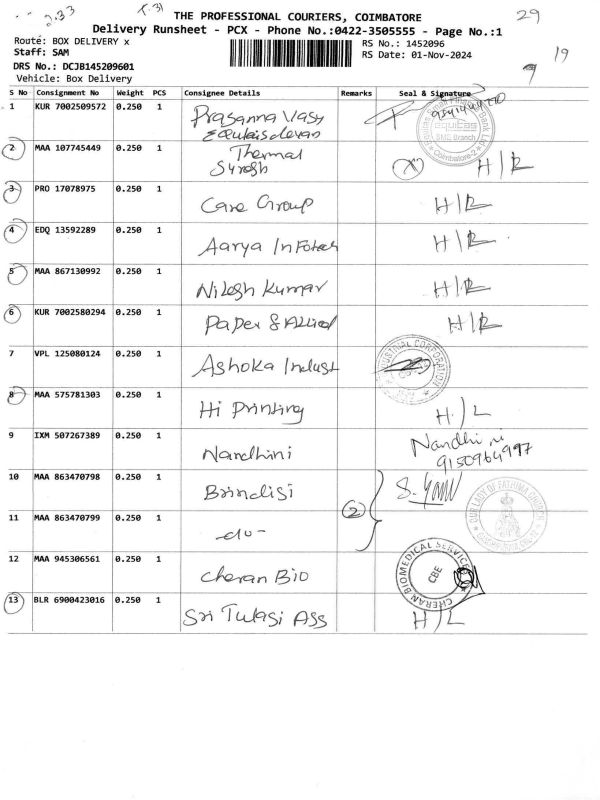 2.33
29
19
THE PROFESSIONAL COURIERS, COIMBATORE
Delivery Runsheet - PCX - Phone No.:0422-3505555 - Page No.:1
Route: BOX DELIVERY x
Staff: SAM
RS No.: 1452096
RS Date: 01-Nov-2024
DRS No.: DCJB145209601
Vehicle: Box Delivery
S No Consignment No Weight PCS Consignee Details Remarks Seal & Signature
1 KUR 7002509572 0.250 1 Prasanna
equitas
SME Branch
Coimbatore-2
2 MAA 107745449 0.250 1 Thermal
Suresh X H/R
3 PRO 17078975 0.250 1 Care Group H/R
4 EDQ 13592289 0.250 1 Aarya InFotech H/R
5 MAA 867130992 0.250 1 Nilesh Kumar H/R
6 KUR 7002580294 0.250 1 Paper & Allied H/R
7 VPL 125080124 0.250 1 Ashoka Indust
INDUSTRIAL CORPORATION
8 MAA 575781303 0.250 1 Hi Printing H/L
9 IXM 507267389 0.250 1 Nandhini Nandhini
9150964997
10 MAA 863470798 0.250 1 Brindisi 2
OUR LADY OF FATHIMA CHURCH
11 MAA 863470799 0.250 1 -do-
12 MAA 945306561 0.250 1 Cheran Bio
CHERAN BIOMEDICAL SERVICES
CBE
13 BLR 6900423016 0.250 1 Sri Tulasi Ass H/L